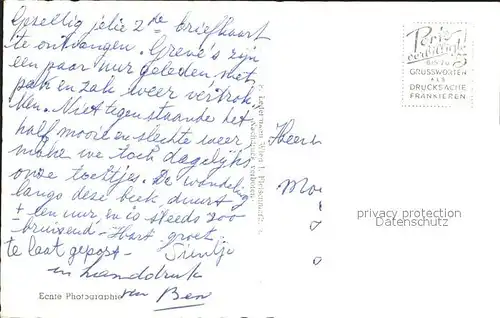 Gezellig jelie 2de briefkaart
te ontvangen. Greve's zijn
een paar uur geleden, met
pak en zak weer vertrok-
ken. Niet tegenstaande het
half mooie en slechte weer
make we toch dagelijks
onze tochtjes. De wandeling
langs deze beek, duurt
± een uur, en is steeds zoo
bruisend - Hart. groet
te laat gepost - Tientje
en handdruk
van Ben
Echte Photographie
Heer
Mo
Porto
verbilligt
BIS ZU
GRUSSWORTEN
ALS
DRUCKSACHE
FRANKIEREN
privacy protection